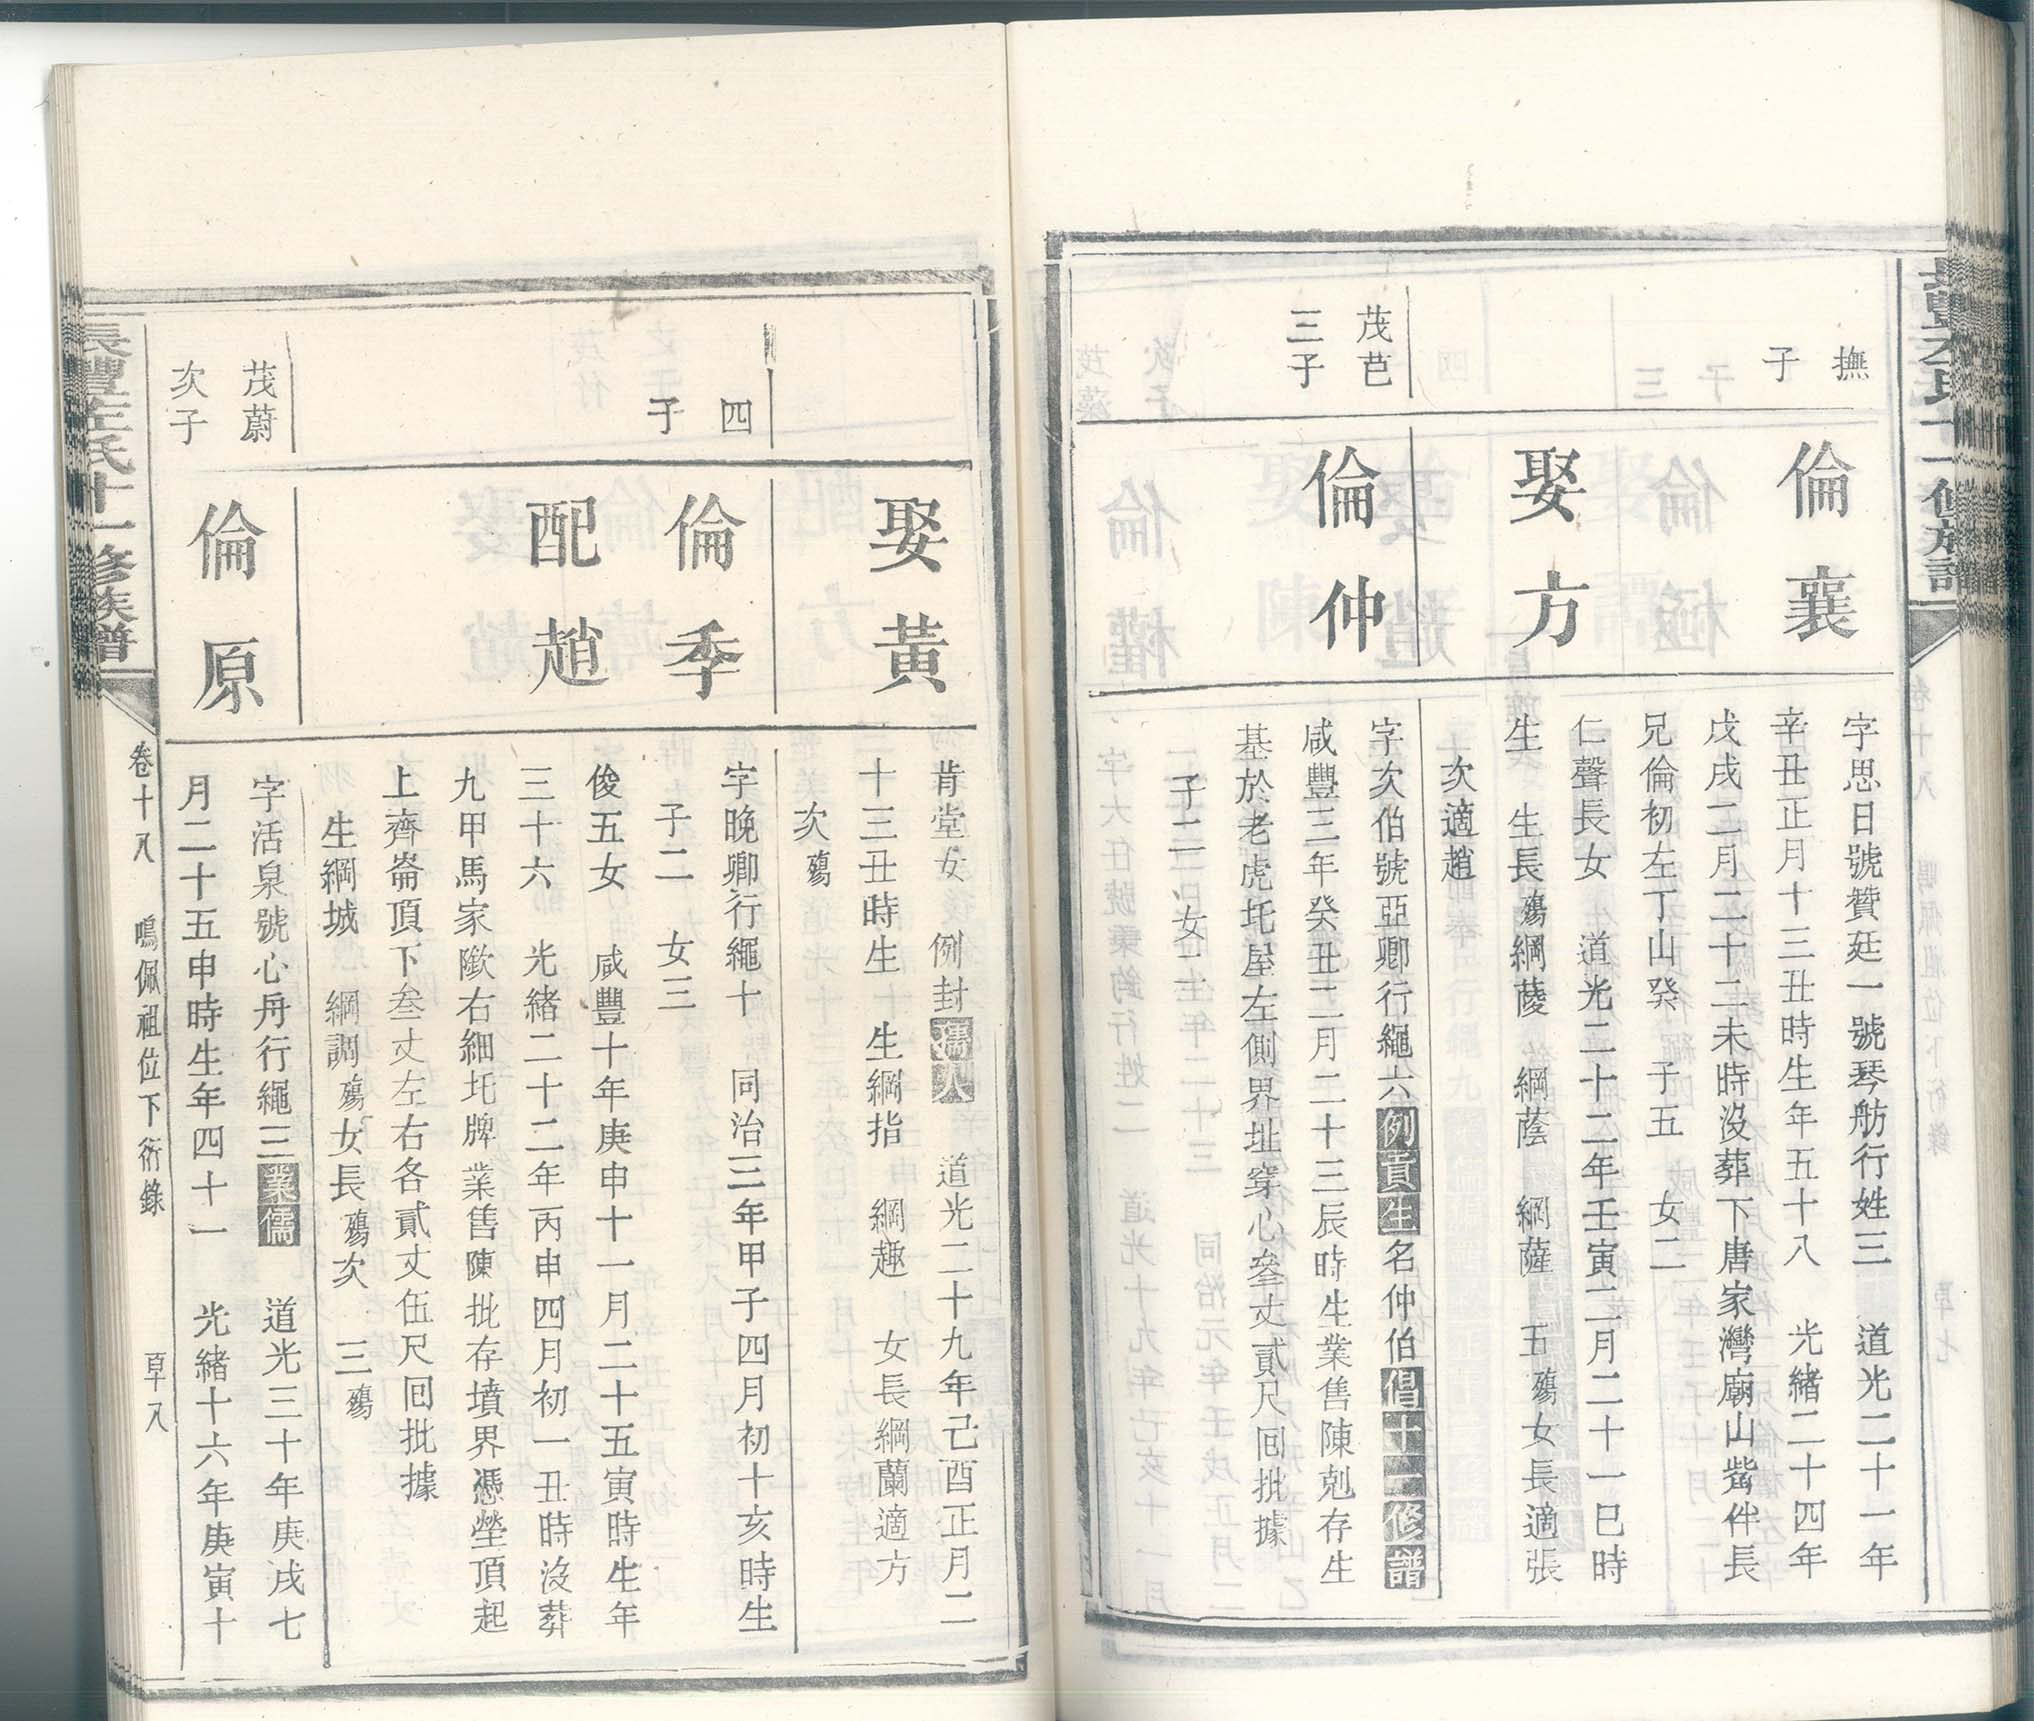 撫
子
倫襄
字思日號贊廷一號琴舫行姓三　道光二十一年
辛丑正月十三丑時生年五十八　光緒二十四年
戊戌二月二十二未時沒葬下唐家灣廟山嘴伴長
兄倫初左丁山癸　子五　女二
娶方
仁聲長女　道光二十二年壬寅二月二十一巳時
生　生長殤綱薐　綱蔭　綱薩　五殤女長適張
次適趙
茂芭
三子
倫仲
字次伯號亞卿行繩六例貢生名仲伯倡十一修譜
咸豐三年癸丑二月二十三辰時生業售陳剋存生
基於老虎坉屋左側界址穿心叄丈貳尺囘批據
子二　女一
娶黃
肯堂女　例封孺人　道光二十九年己酉正月二
十三丑時生　生綱指　綱趣　女長綱蘭適方
次殤
四
子
倫季
字晚卿行繩十　同治三年甲子四月初十亥時生
子二　女三
配趙
俊五女　咸豐十年庚申十一月二十五寅時生年
三十六　光緒二十二年丙申四月初一丑時沒葬
九甲馬家隞右細坉牌業售陳批存墳界憑塋頂起
上齊崙頂下叁丈左右各貳丈伍尺囘批據
生綱城　綱調殤女長殤次　三殤
茂蔚
次子
倫原
字活泉號心舟行繩三業儒　道光三十年庚戌七
月二十五申時生年四十一　光緒十六年庚寅十
長豐左氏十一修族譜
卷十八　鳴佩祖位下衍錄